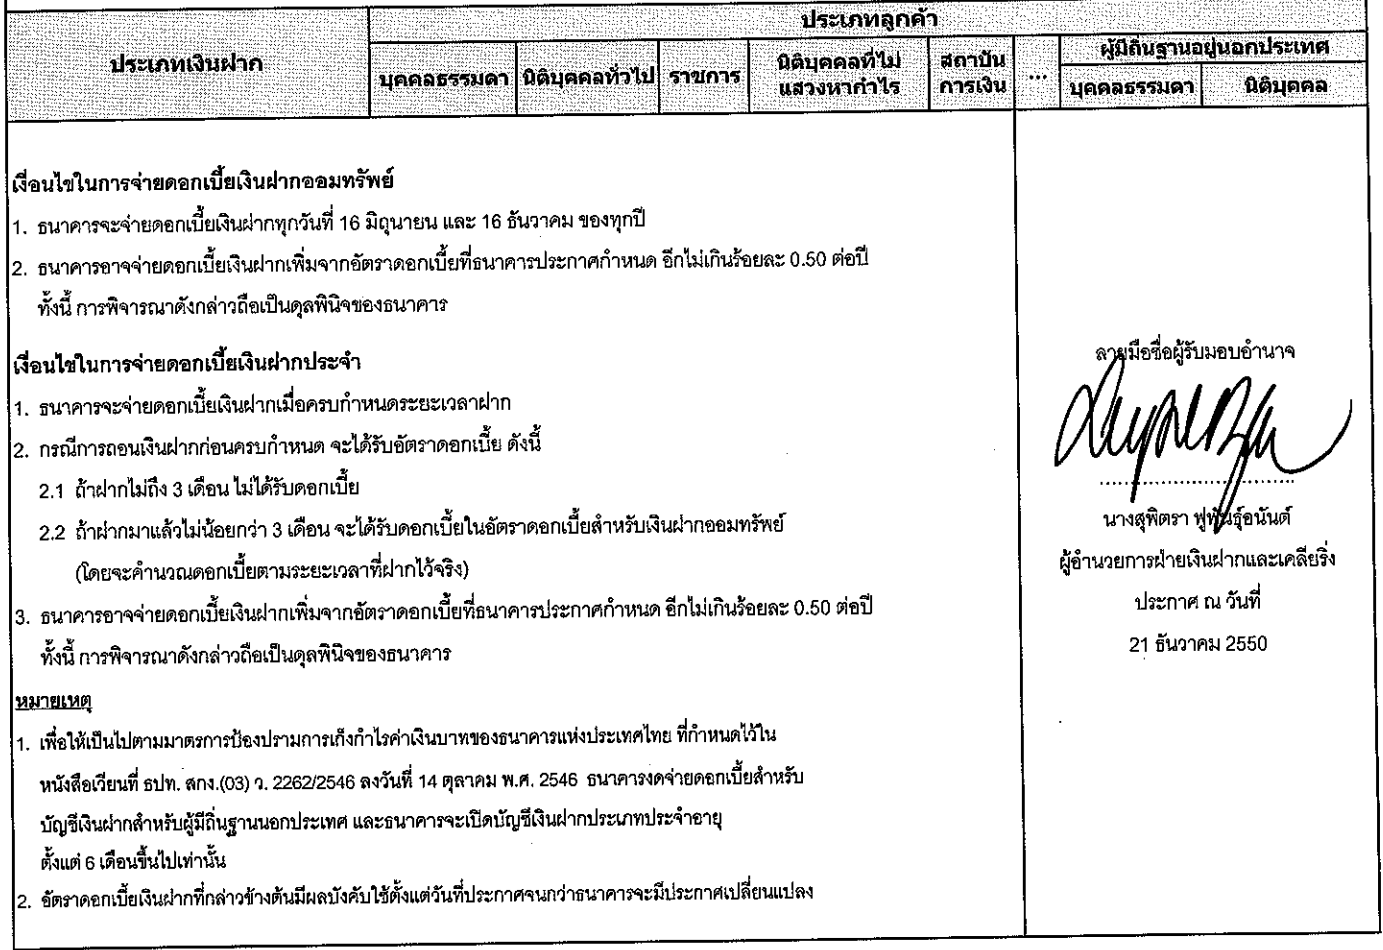 ประเภทลูกค้า
ประเภทเงินฝาก
บุคคลธรรมดา นิติบุคคลทั่วไป ราชการ นิติบุคคลที่ไม่แสวงหากำไร สถาบันการเงิน ... ผู้มีถิ่นฐานอยู่นอกประเทศ
บุคคลธรรมดา นิติบุคคล
เงื่อนไขในการจ่ายดอกเบี้ยเงินฝากออมทรัพย์
1. ธนาคารจะจ่ายดอกเบี้ยเงินฝากทุกวันที่ 16 มิถุนายน และ 16 ธันวาคม ของทุกปี
2. ธนาคารอาจจ่ายดอกเบี้ยเงินฝากเพิ่มจากอัตราดอกเบี้ยที่ธนาคารประกาศกำหนด อีกไม่เกินร้อยละ 0.50 ต่อปี
ทั้งนี้ การพิจารณาดังกล่าวถือเป็นดุลพินิจของธนาคาร
เงื่อนไขในการจ่ายดอกเบี้ยเงินฝากประจำ
1. ธนาคารจะจ่ายดอกเบี้ยเงินฝากเมื่อครบกำหนดระยะเวลาฝาก
2. กรณีการถอนเงินฝากก่อนครบกำหนด จะได้รับอัตราดอกเบี้ย ดังนี้
2.1 ถ้าฝากไม่ถึง 3 เดือน ไม่ได้รับดอกเบี้ย
2.2 ถ้าฝากมาแล้วไม่น้อยกว่า 3 เดือน จะได้รับดอกเบี้ยในอัตราดอกเบี้ยสำหรับเงินฝากออมทรัพย์
(โดยจะคำนวณดอกเบี้ยตามระยะเวลาที่ฝากไว้จริง)
3. ธนาคารอาจจ่ายดอกเบี้ยเงินฝากเพิ่มจากอัตราดอกเบี้ยที่ธนาคารประกาศกำหนด อีกไม่เกินร้อยละ 0.50 ต่อปี
ทั้งนี้ การพิจารณาดังกล่าวถือเป็นดุลพินิจของธนาคาร
หมายเหตุ
1. เพื่อให้เป็นไปตามมาตรการป้องปรามการเก็งกำไรค่าเงินบาทของธนาคารแห่งประเทศไทย ที่กำหนดไว้ใน
หนังสือเวียนที่ ธปท. สกง.(03) ว. 2262/2546 ลงวันที่ 14 ตุลาคม พ.ศ. 2546 ธนาคารงดจ่ายดอกเบี้ยสำหรับ
บัญชีเงินฝากสำหรับผู้มีถิ่นฐานนอกประเทศ และธนาคารจะเปิดบัญชีเงินฝากประเภทประจำอายุ
ตั้งแต่ 6 เดือนขึ้นไปเท่านั้น
2. อัตราดอกเบี้ยเงินฝากที่กล่าวข้างต้นมีผลบังคับใช้ตั้งแต่วันที่ประกาศจนกว่าธนาคารจะมีประกาศเปลี่ยนแปลง
ลายมือชื่อผู้รับมอบอำนาจ
นางสุพิตรา ฟูพันธุ์อนันต์
ผู้อำนวยการฝ่ายเงินฝากและเคลียริ่ง
ประกาศ ณ วันที่
21 ธันวาคม 2550